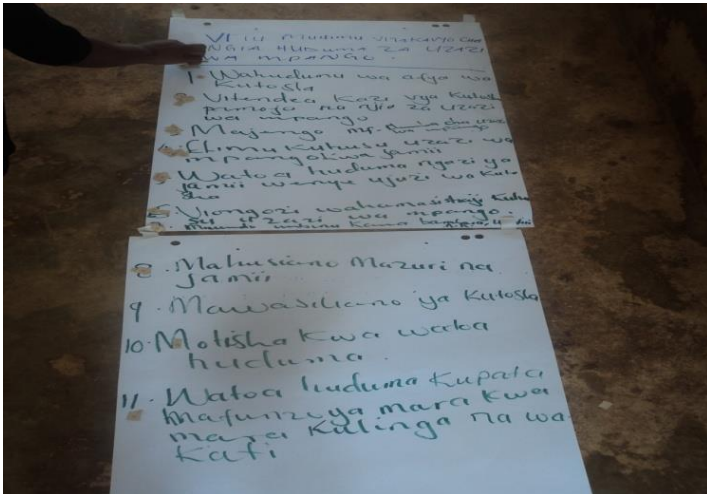 VITU MUHIMU VITAKAVYO CHA
NGIA HUDUMA ZA UZAZI
WA MPANGO.
1. Wahudumu wa afya wa
Kutosha
2. Vitendea Kazi vya Kutosha
pamoja na njia za uzazi
wa mpango
3. Majengo mf. Chumba cha uzazi
wa mpango
4. Elimu Kuhusu uzazi wa
mpango kwa jamii
5. Watoa huduma ngazi ya
jamii wenye ujuzi wa Kuto
sha
6. Viongozi wahamasishaji Kuhu
su uzazi wa mpango.
7. Miundo mbinu Kama
8. Mahusiano Mazuri na
jamii
9. Mawasiliano ya Kutosha
10. Motisha Kwa watoa
huduma.
11. Watoa huduma Kupata
Mafunzo ya mara kwa
mara Kulinga na wa
Kati